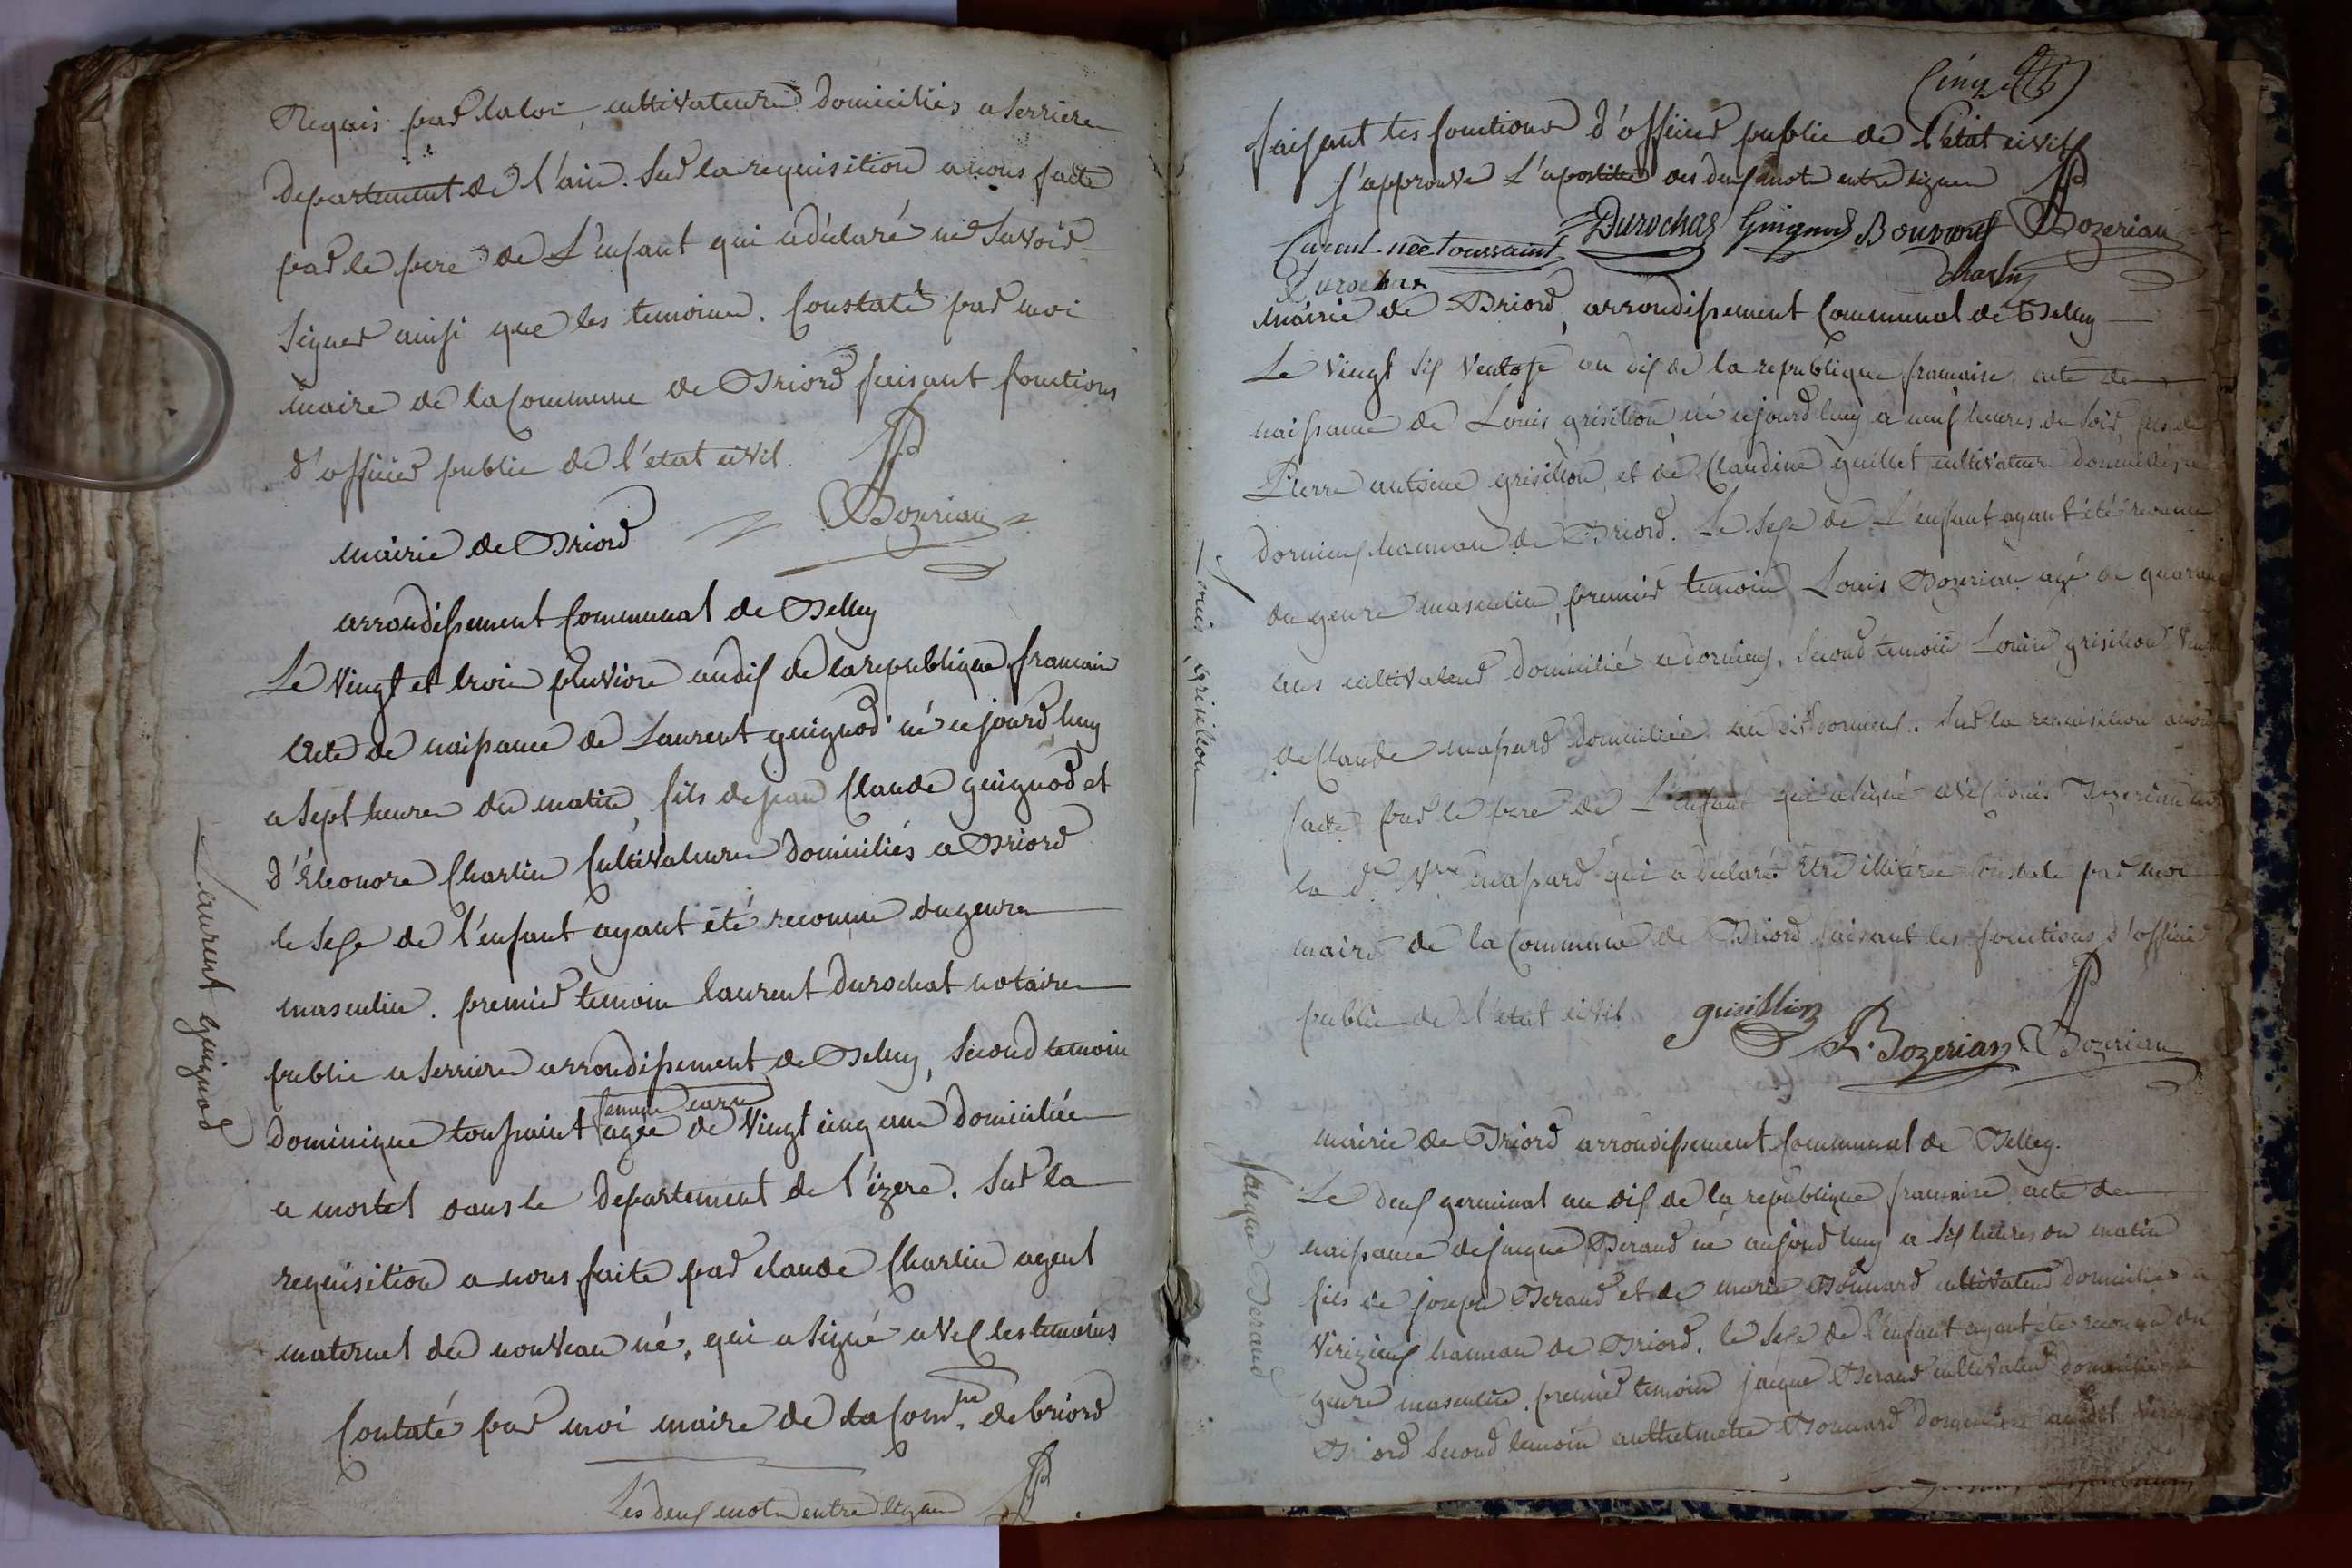 Requis par la loi, cultivateurs domiciliés a serriere
departement de l'ain. Sur la requisition a nous faite
par le pere de L'enfant qui a déclaré ne savoir
signer ainsi que les temoins. Constaté par moi
maire de la Commune de Briord faisant fonctions
d'officier public de l'etat civil.
Bozerian
mairie de Briord
arrondissement Communal de Belley
Le vingt et trois pluviose an dix de la republique francaise
Acte de naissance de Laurent guignod né cejourd'huy
a sept heures du matin, fils de jean Claude guignod et
d'Éléonore Charlin Cultivateurs domiciliés a Briord
le sexe de l'enfant ayant été reconnu du genre
masculin. premier temoin laurent durochat notaire
public a serriere arrondissement de Belley, second temoin
femme
dominique toussaint agée de vingt cinq ans domiciliée
a mortel dans le departement de l'izere. Sur la
requisition a nous faite par claude Charlin agent
maternel du nouveau né, qui a signé avec les temoins
Contaté par moi maire de la Comm.ne de briord
Les deux mots entre lignes
Laurent Guignod
faisant les fonctions d'officier public de l'état civil
j'approuve L'apostille des deux mots entre lignes
née toussaint Durochas Guignod Bozerian
Durochas Charlin
Mairie de Briord, arrondissement Communal de Belley
Le vingt six ventose an dix de la republique francaise acte de
naissance de Louis grisillon né cejourd'huy a neuf heures du soir, fils de
Pierre antoine grisillon, et de Claudine guillet cultivateurs domiciliés a
dornieux hameau de Briord. Le sexe de L'enfant ayant été reconnu
du genre masculin, premier temoin Louis Bozerian agé de quarante
ans cultivateur domicilié a dornieux. Second temoin Louise grisillon veuve
de Claude massard domiciliée au dit dornieux. Sur la requisition a nous
faite par le pere de L'enfant qui a signé avec Louis Bozerian
la d.e V.ve massard qui a déclaré être illitérée Constaté par moi
maire de la Commune de Briord faisant les fonctions d'officier
public de l'etat civil. grisillion
L. Bozerian Bozerian
Louis Grisillon
mairie de Briord arrondissement Communal de Belley.
Le deux germinal an dix de la republique francaise acte de
naissance de jacque Beraud né aujourd'huy a six heures du matin
fils de joseph Beraud et de marie Bonnard cultivateurs domiciliés a
Virizieux hameau de Briord. le sexe de l'enfant ayant été reconnu du
genre masculin. premier temoin jacque Beraud cultivateur domicilié a
Briord second temoin anthelmette Bonnard domiciliée audit
Jacque Beraud